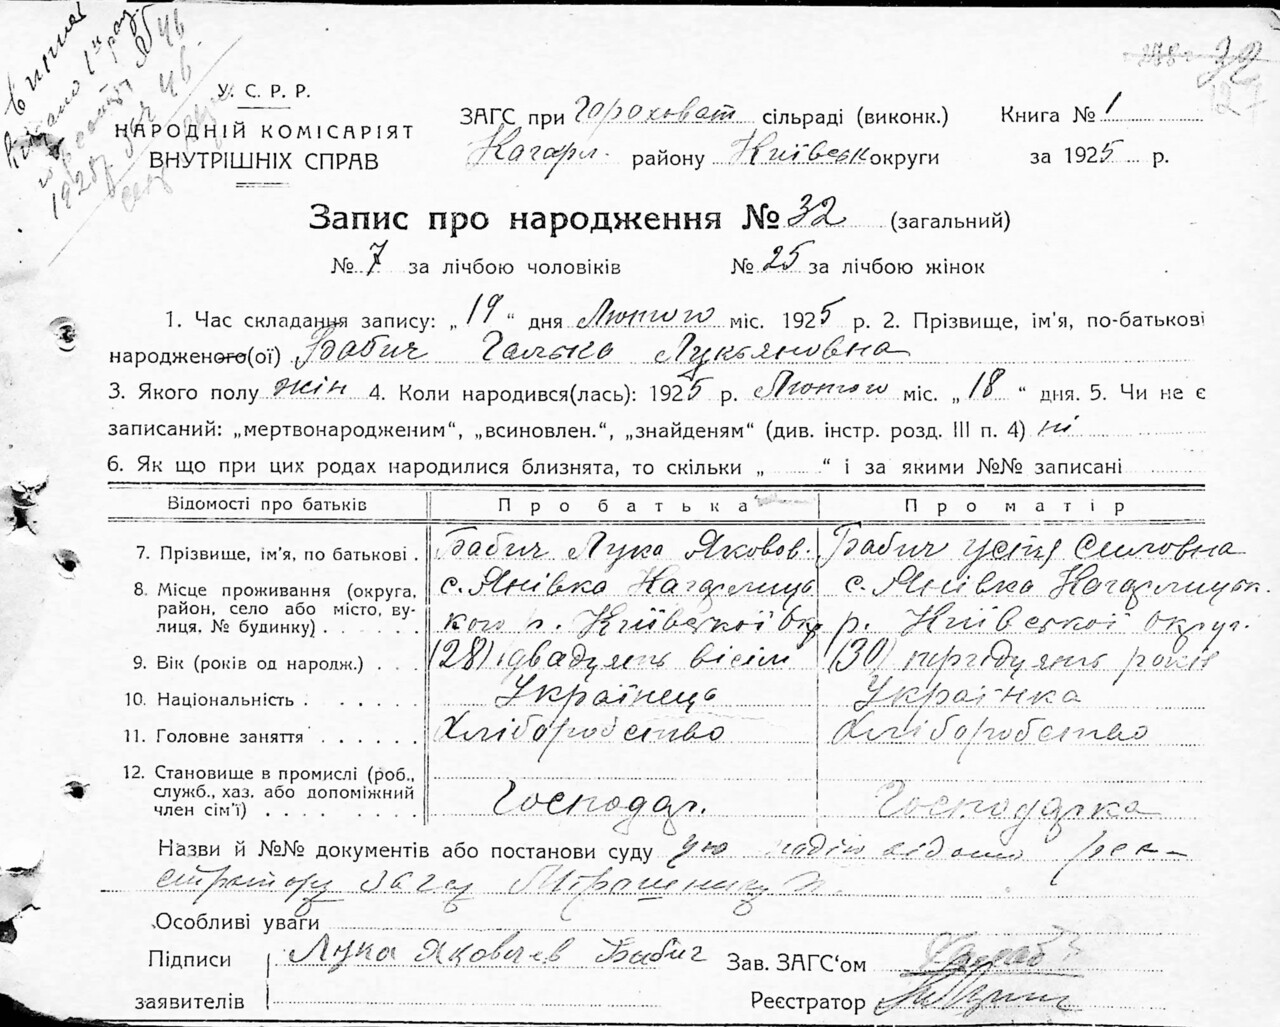 У. С. Р. Р.
НАРОДНІЙ КОМІСАРІЯТ
ВНУТРІШНІХ СПРАВ
ЗАГС при Гороховат сільраді (виконк.)
Кагарл. району Київськ округи
Книга № 1
за 1925 р.
32
127
Запис про народження № 32 (загальний)
№ 7 за лічбою чоловіків № 25 за лічбою жінок
1. Час складання запису: „19“ дня Лютого міс. 1925 р. 2. Прізвище, ім'я, по-батькові
народженого(ої) Бабич Галька Лукьяновна
3. Якого полу жін 4. Коли народився(лась): 1925 р. Лютого міс. „18“ дня. 5. Чи не є
записаний: „мертвонародженим“, „всиновлен.“, „знайденям“ (див. інстр. розд. III п. 4) ні
6. Як що при цих родах народилися близнята, то скільки „ “ і за якими №№ записані
Відомості про батьків Про батька Про матір
7. Прізвище, ім'я, по батькові . Бабич Лука Яковов. Бабич Устя Силовна
8. Місце проживання (округа, район, село або місто, вулиця, № будинку) . . . . . с. Янівка Кагарлицького р. Київської окр с. Янівка Кагарлицьк. р. Київської округ.
9. Вік (років од народж.) . . . (28) двадцять вісім (30) трідцять років
10. Національність . . . . . . Українець Українка
11. Головне заняття . . . . . . Хліборобство Хліборобство
12. Становище в промислі (роб., служб., хаз. або допоміжний член сім'ї) . . . . . . . Господар. Господарка
Назви й №№ документів або постанови суду
Особливі уваги
Підписи Лука Яковлев Бабич Зав. ЗАГС'ом
заявителів Реєстратор